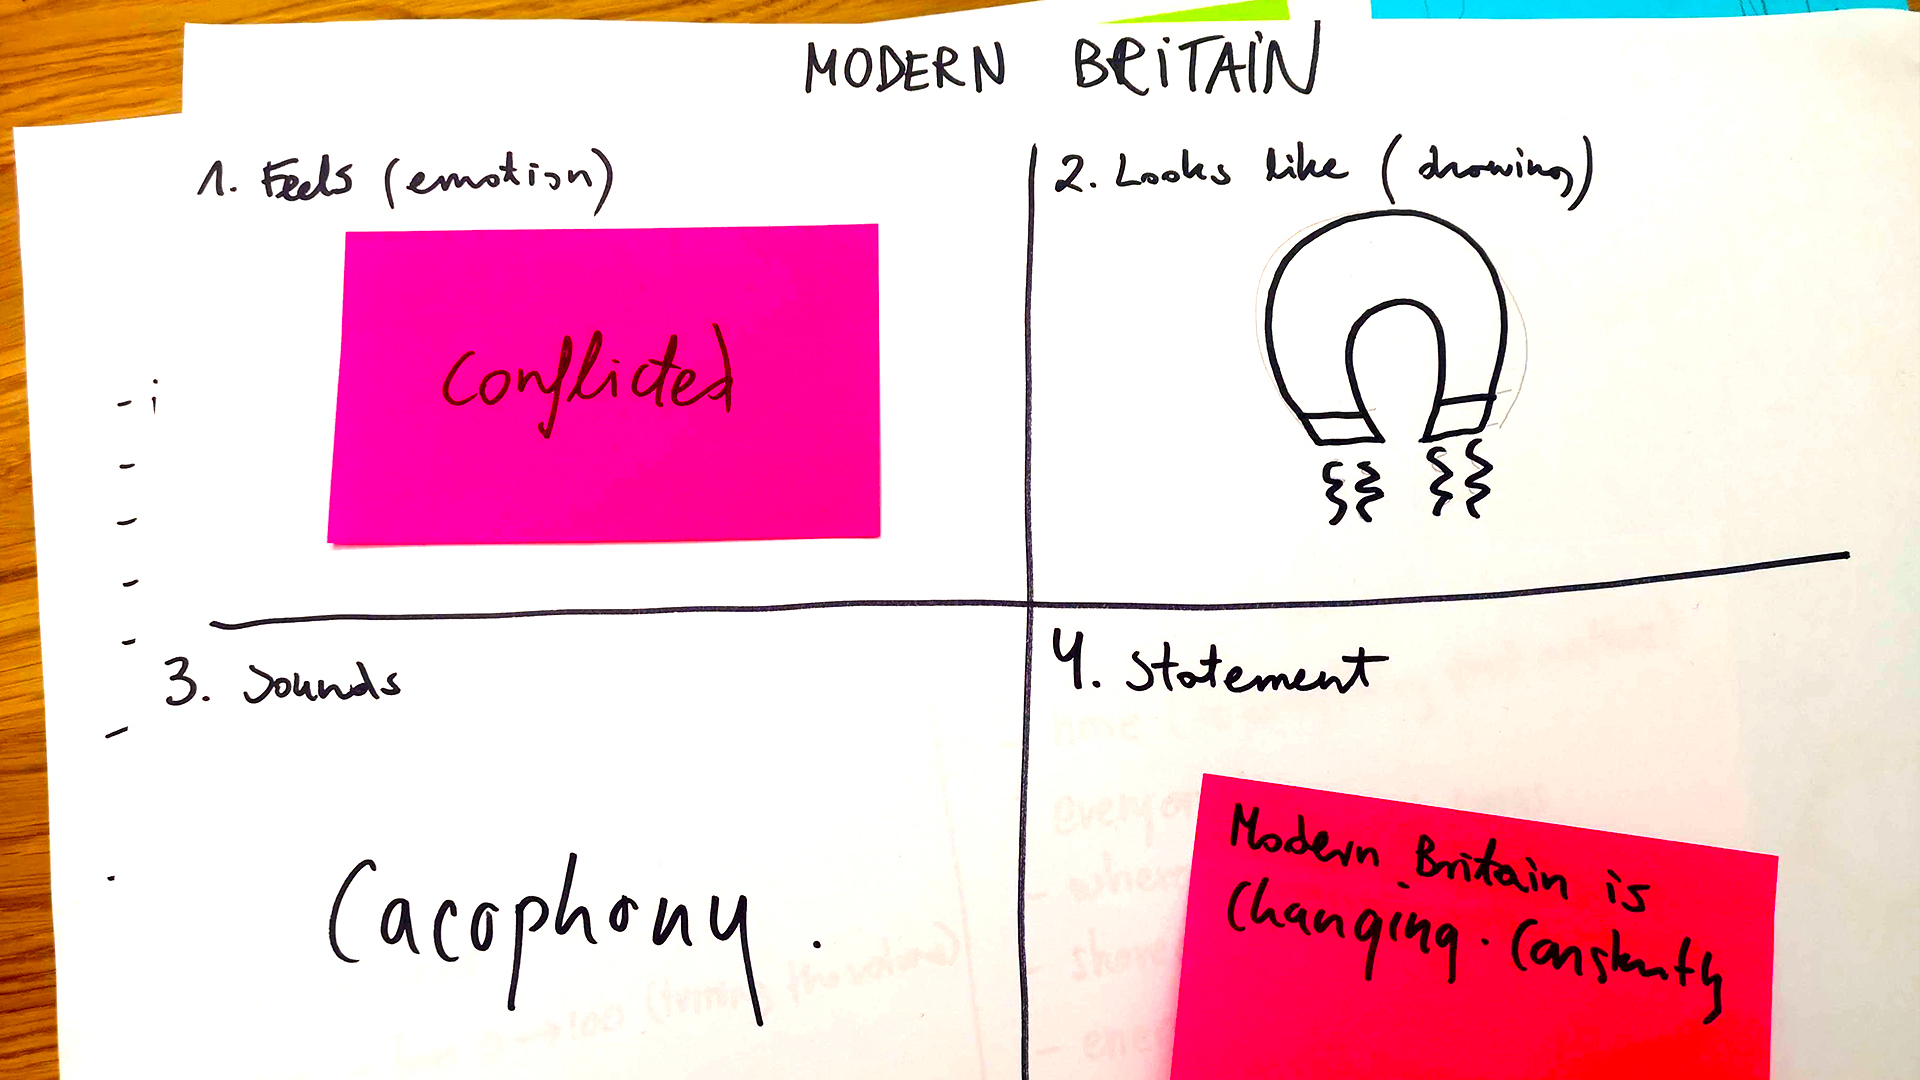 MODERN BRITAIN
1. Feels (emotion)
Conflicted
2. Looks like (drawing)
3. Sounds
Cacophony.
4. Statement
Modern Britain is
Changing. Constantly